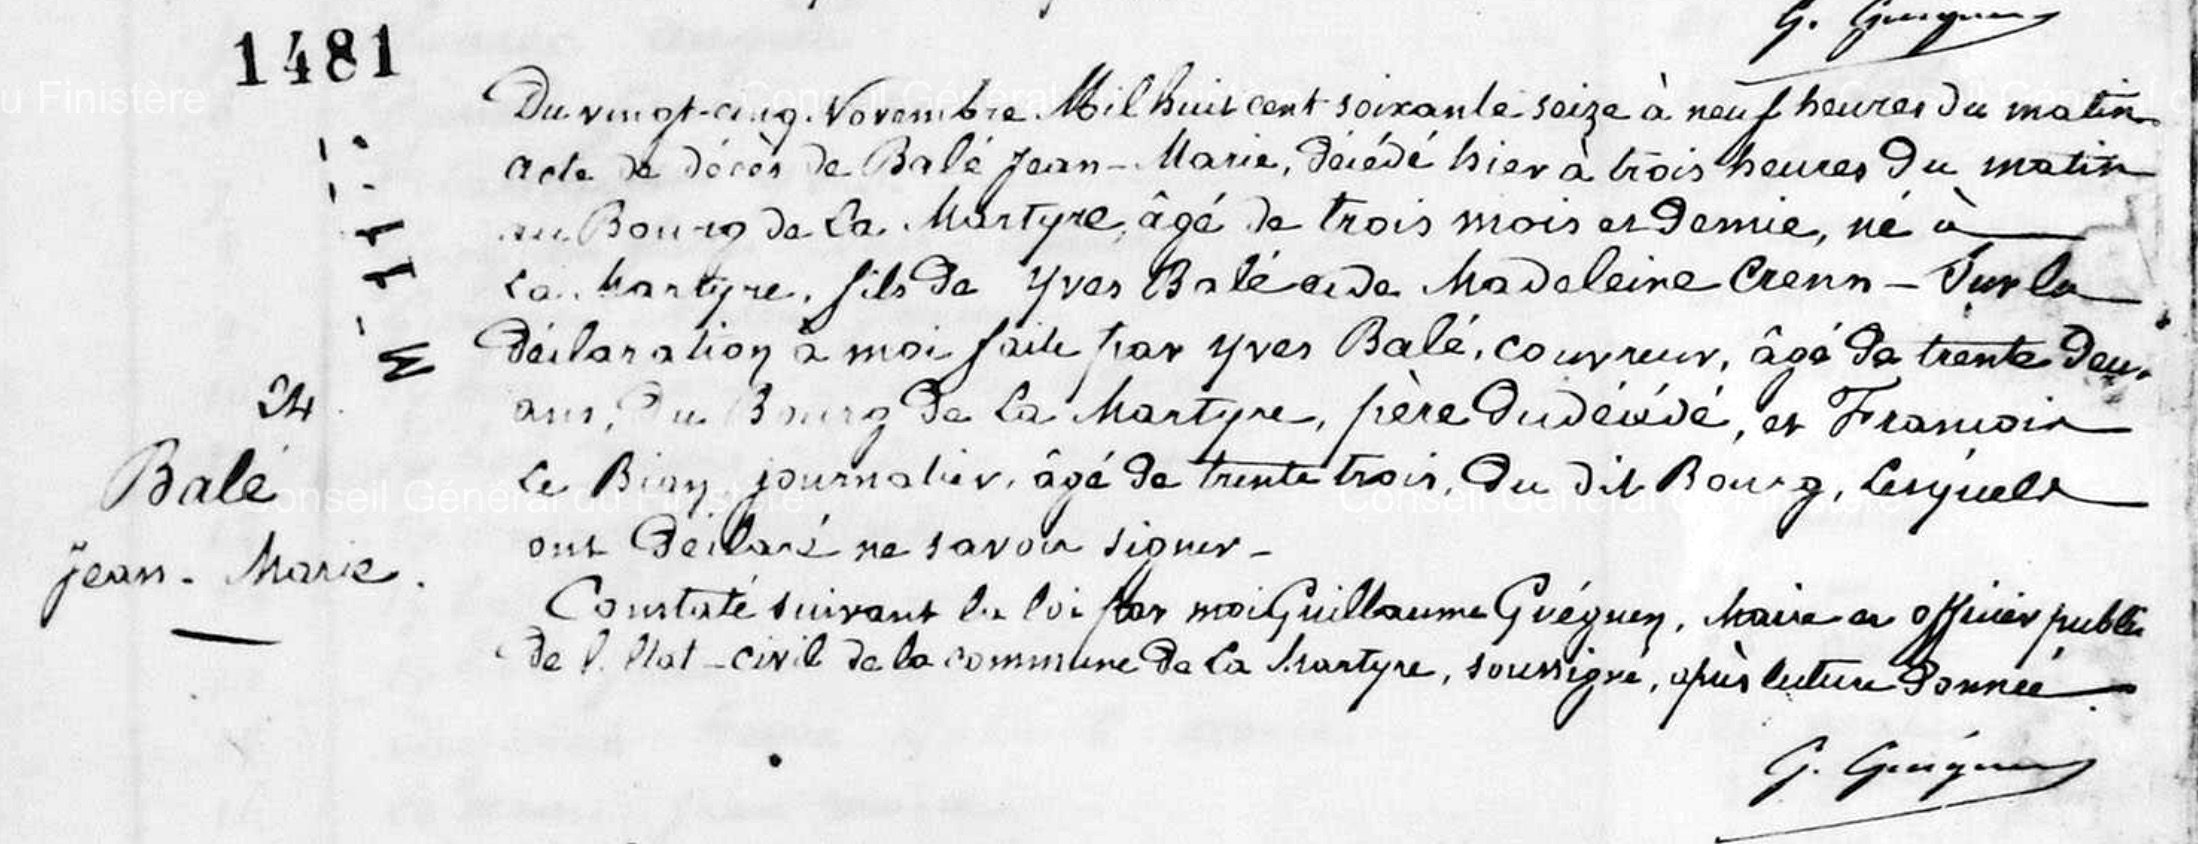 G. Guéguen
1481
Du vingt-cinq Novembre Mil huit cent soixante seize à neuf heures du matin
acte de décès de Balé Jean-Marie, décédé hier à trois heures du matin
au Bourg de La Martyre, âgé de trois mois et demie, né à
La Martyre, fils de Yves Balé et de Madeleine Crenn - Sur la
déclaration à moi faite par Yves Balé, couvreur, âgé de trente deux
ans, du Bourg de La Martyre, père du décédé, et François
Le Bian journalier, âgé de trente trois, du dit Bourg, Lesquels
ont déclaré ne savoir signer -
Constaté suivant la loi par moi Guillaume Guéguen, Maire et officier public
de l'Etat-civil de la commune de La Martyre, soussigné, après lecture donnée
24
Balé
Jean-Marie.
G. Guéguen
Conseil Général du Finistère